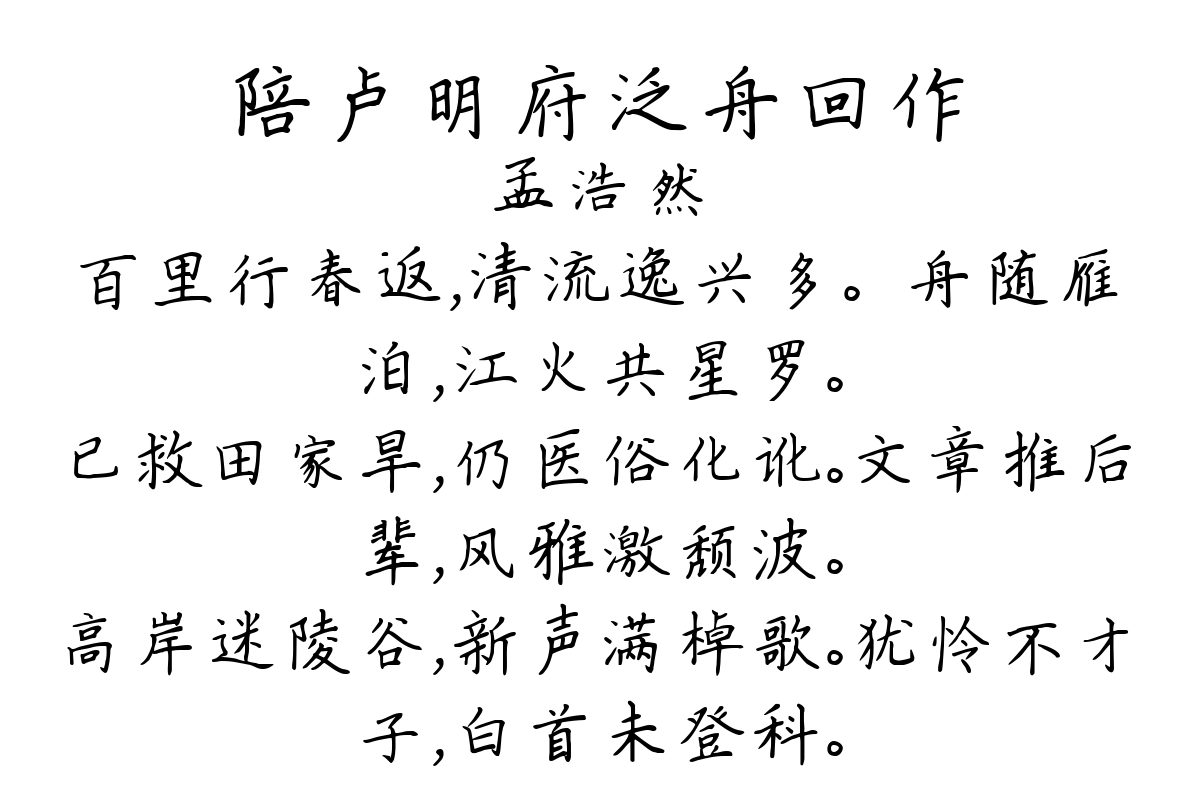 陪卢明府泛舟回作
孟浩然
百里行春返,清流逸兴多。舟随雁
泊,江火共星罗。
已救田家旱,仍医俗化讹。文章推后
辈,风雅激颓波。
高岸迷陵谷,新声满棹歌。犹怜不才
子,白首未登科。